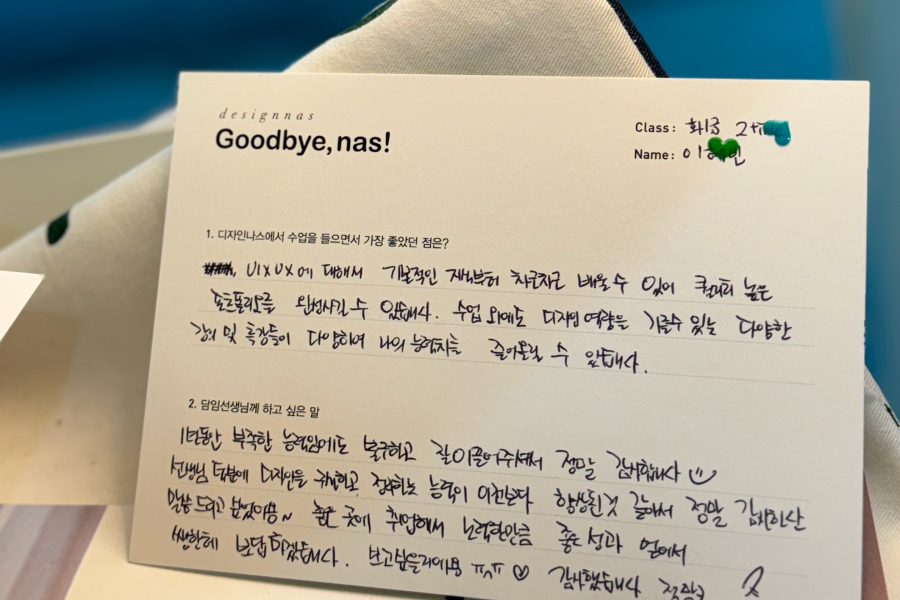 designnas
Goodbye, nas!
Class: 화금
Name: 이
1. 디자인나스에서 수업을 들으면서 가장 좋았던 점은?
UIXUX에 대해서 기본적인 차근차근 배울 수 있어 퀄리티 높은
포트폴리오를 완성시킬 수 있었습니다. 수업 외에도 디자인 역량을 기를수 있는 다양한
강의 및 특강들이 다양하여 나의 능력치를 끌어올릴 수 있었습니다.
2. 담임선생님께 하고 싶은 말
1년동안 부족한 능력임에도 불구하고 잘 이끌어주셔서 정말 감사했습니다
선생님 덕분에 디자인을 하는 능력이 이전보다 향상된것 같아서 정말 감사하단
말씀 드리고 싶었어용~ 좋은 곳에 취업해서 노력한만큼 좋은 성과 얻어서
쌤한테 보답하겠습니다. 보고싶을거에용 ㅠㅅㅠ ♡ 감사했습니다